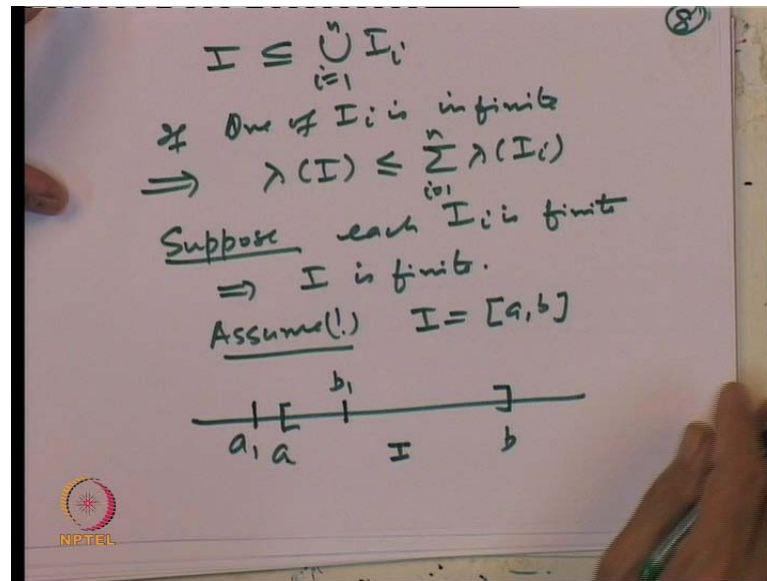 8
I ⊆ ⋃_{i=1}^{n} I_i
If One of I_i is infinite
⟹ λ(I) ≤ ∑_{i=1}^{n} λ(I_i)
Suppose each I_i is finite
⟹ I is finite.
Assume(!) I = [a, b]
b_1
a_1 a I b
NPTEL